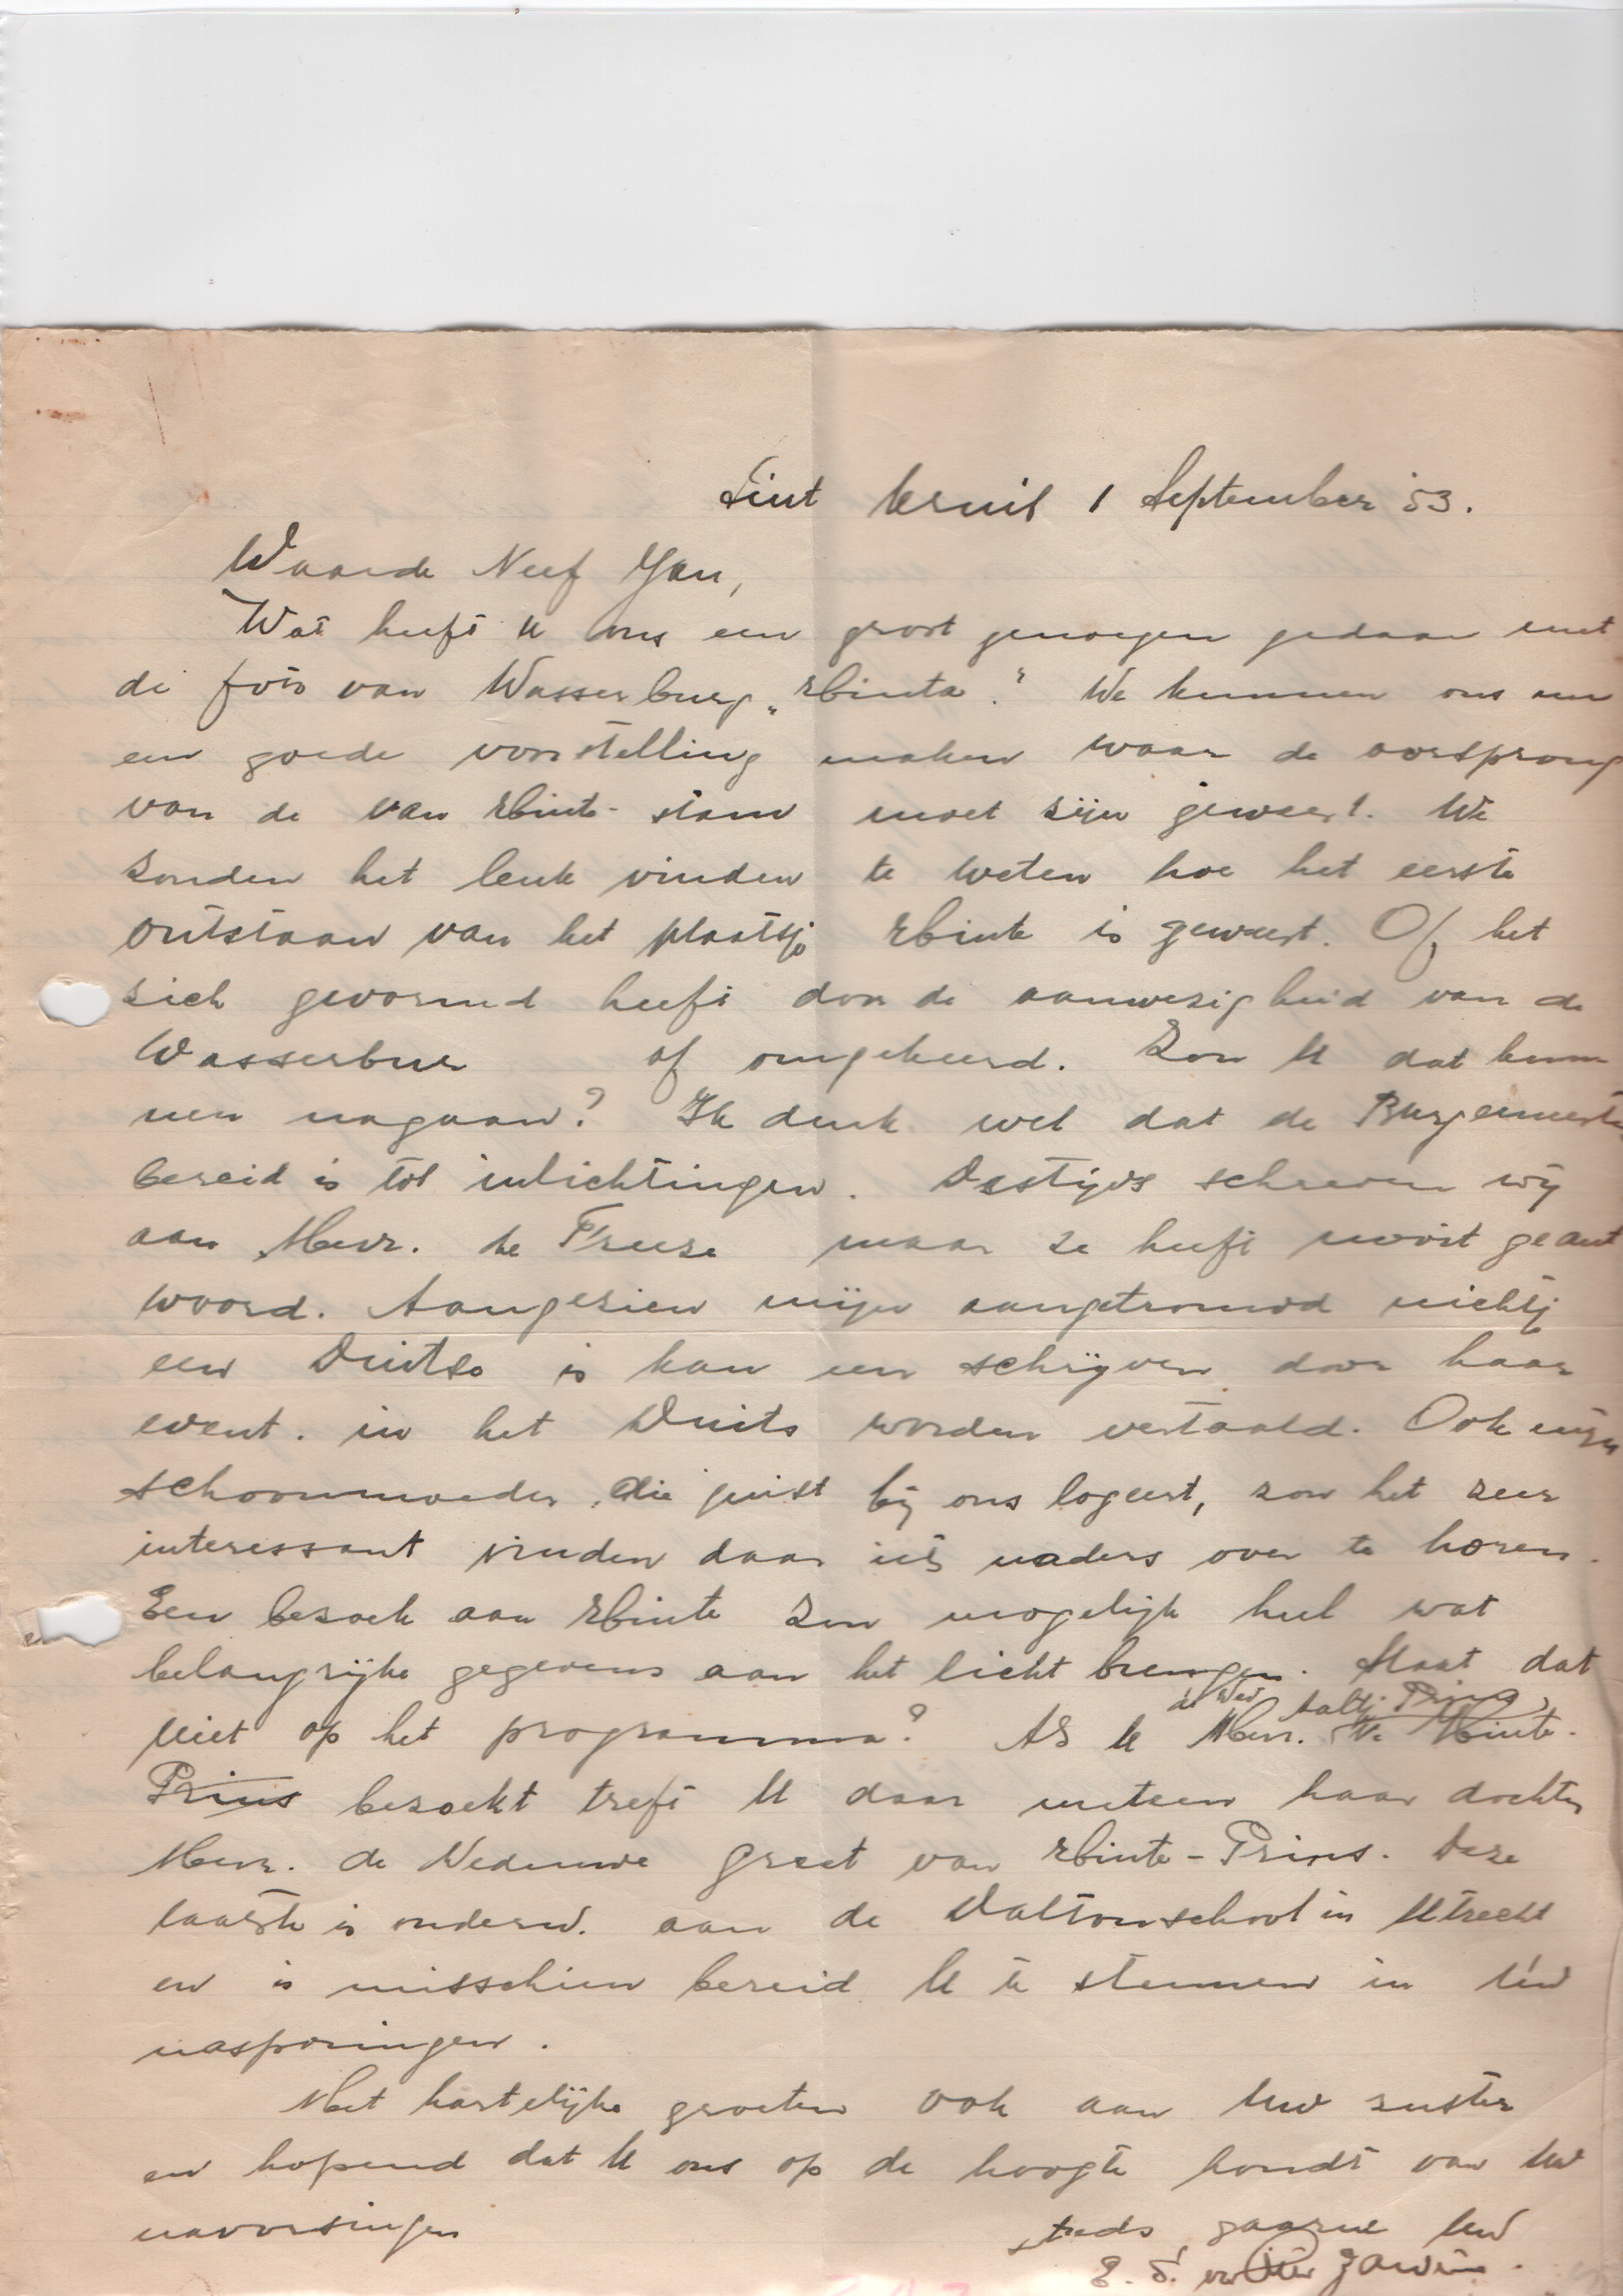 Sint Kruis 1 September '53.
Waarde Neef Jan,
Wat heeft u ons een groot genoegen gedaan met
de foto van Wasserburg „Hinta". We kunnen ons nu
een goede voorstelling maken waar de oorsprong
van de van Hinte-stam moet zijn geweest. We
zouden het leuk vinden te weten hoe het eerste
ontstaan van het plaatsje Hinte is geweest. Of het
zich gevormd heeft door de aanwezigheid van de
Wasserbur of omgekeerd. Zou U dat kun
nen nagaan? Ik denk wel dat de Burgemeester
bereid is tot inlichtingen. Destijds schreven wij
aan Mevr. de Freese maar ze heeft nooit geant
woord. Aangezien mijn aangetrouwd nichtje
een Duitse is kan een schrijven door haar
event. in het Duits worden vertaald. Ook mijn
schoonmoeder, die juist bij ons logeert, zou het zeer
interessant vinden daar iets naders over te horen.
Een bezoek aan Hinte zou mogelijk heel wat
belangrijke gegevens aan het licht brengen. Staat dat
de Wed. Aaltje Prins,
niet op het programma? Als U Mevr. v. Hinte-
Prins bezoekt treft U daar meteen haar dochter
Mevr. de Weduwe Greet van Hinte-Prins. Deze
laatste is onderw. aan de Daltonschool in Utrecht
en is misschien bereid U te steunen in Uw
nasporingen.
Met hartelijke groeten ook aan Uw zuster
en hopend dat U ons op de hoogte houdt van Uw
navorsingen
steeds gaarne Uw